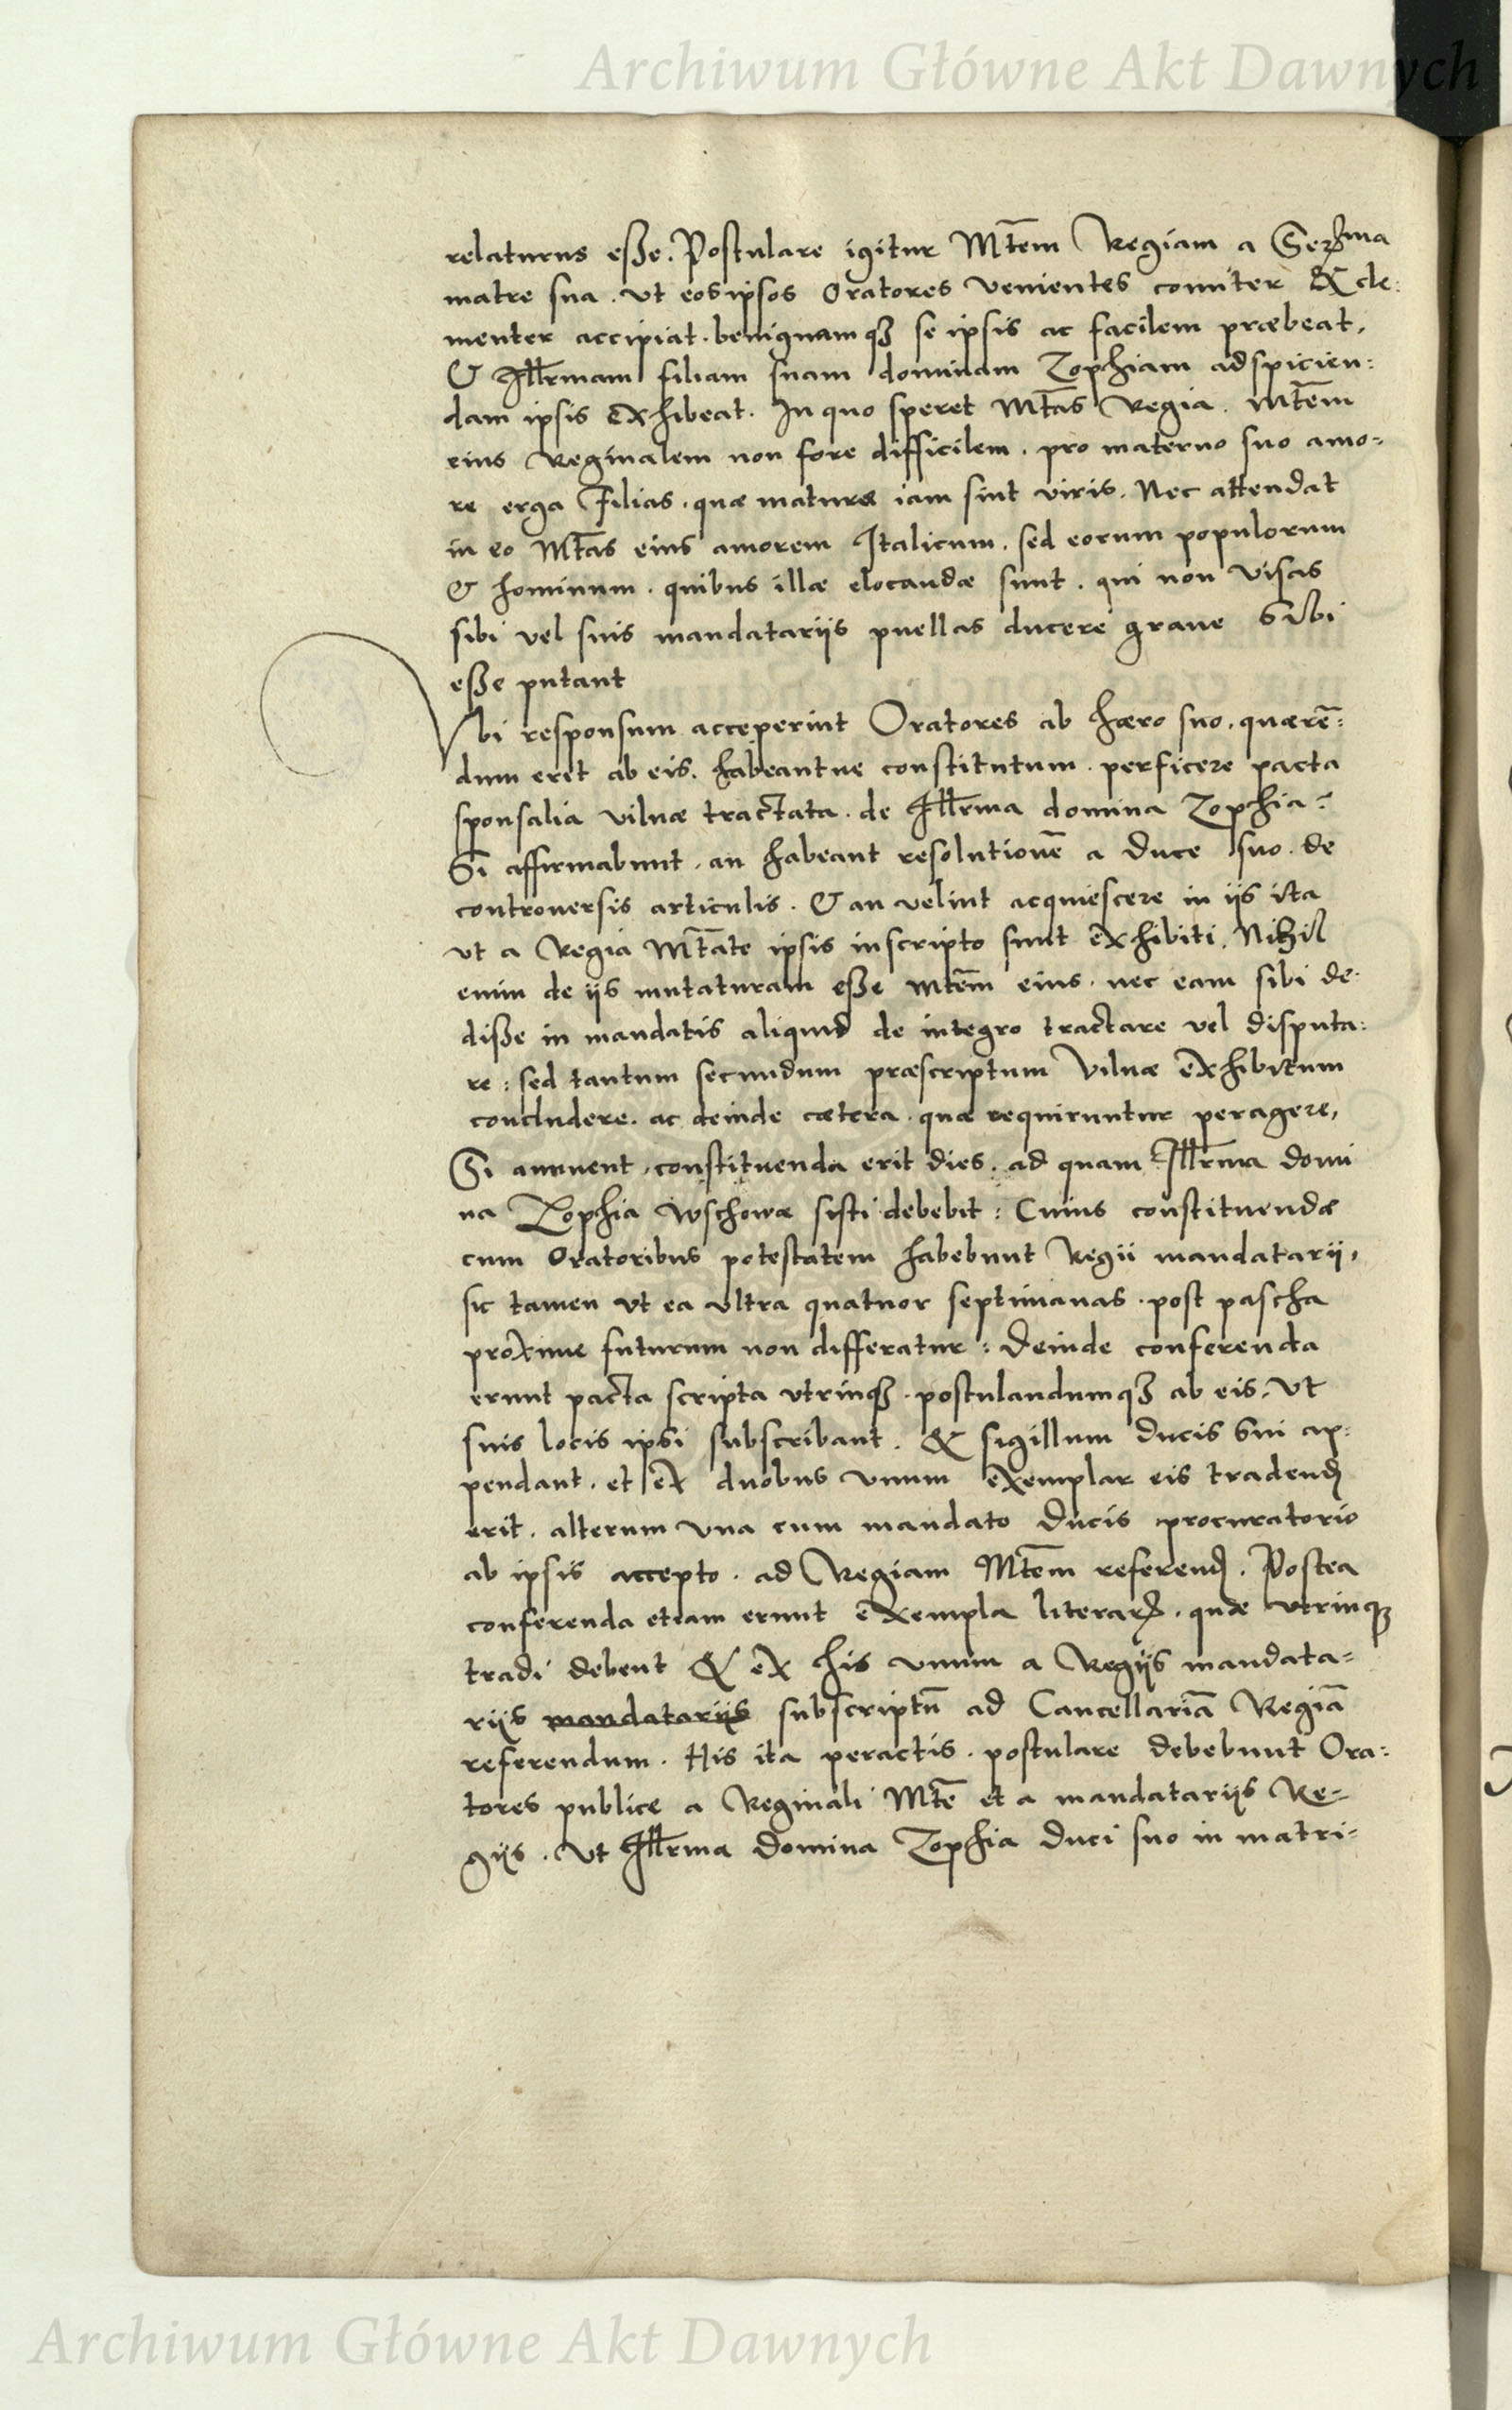 Archiwum Główne Akt Dawnych
relaturus esse. Postulare igitur Mtem Regiam a Serma
matre sua. ut eos ipsos Oratores venientes comiter & cle:
menter accipiat. benignamq3 se ipsis ac facilem præbeat,
& Illrmam filiam suam dominam Zophiam adspicien:
dam ipsis exhibeat. In quo speret Mtas Regia. Mtem
eius Reginalem non fore difficilem. pro materno suo amo-
re erga Filias. quæ maturæ iam sint viris. Nec attendat
in eo Mtas eius amorem Italicum. sed eorum populorum
& hominum. quibus illæ elocandæ sunt. qui non visas
sibi vel suis mandatariis puellas ducere graue sibi
esse putant
Vbi responsum acceperint Oratores ab hæro suo. quærē:
dum erit ab eis. habeantne constitutum. perficere pacta
sponsalia vilnæ tractata. de Illrma domina Zophia:
Si affirmabunt. an habeant resolutionē a Duce suo. de
controuersis articulis. & an velint acquiescere in iis ita
ut a Regia Mtate ipsis inscripto sunt exhibiti. Nihil
enim de iis mutaturam esse Mtem eius. nec eam sibi de:
disse in mandatis aliquid de integro tractare vel disputa:
re: sed tantum secundum præscriptum Vilnæ exhibitum
concludere. ac deinde cætera. quæ requiruntur peragere,
Si annuent, constituenda erit dies. ad quam Illrma domi
na Zophia Wschowæ sisti debebit: Cuius constituendæ
cum Oratoribus potestatem habebunt Regii mandatarii,
sic tamen ut ea ultra quatuor septimanas. post pascha
proxime futurum non differatur: Deinde conferenda
erunt pacta scripta utrinq3. postulandumq3 ab eis. ut
suis locis ipsi subscribant. & sigillum Ducis sui ap:
pendant. et ex duobus unum exemplar eis tradend
erit. alterum una cum mandato Ducis procuratorio
ab ipsis accepto. ad Regiam Mtem referend. Postea
conferenda etiam erunt exempla literar. quæ utrinq3
tradi debent & ex his unum a Regiis mandata-
riis mandatariis subscriptū ad Cancellariā Regiā
referendum. His ita peractis. postulare debebunt Ora:
tores publice a Reginali Mte et a mandatariis Re-
giis. ut Illrma Domina Zophia duci suo in matri-
Archiwum Główne Akt Dawnych